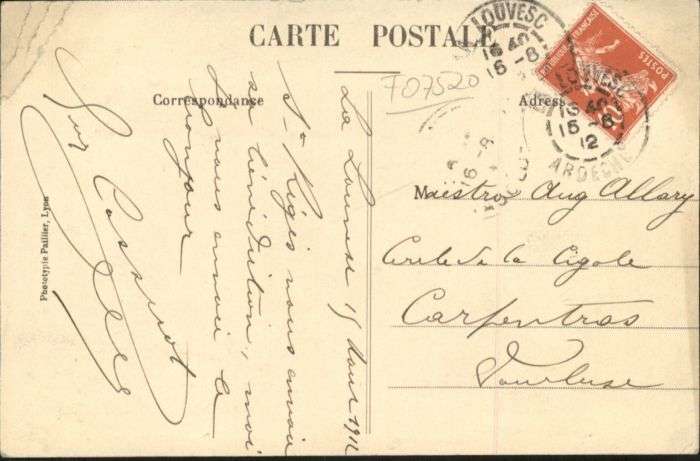 CARTE POSTALE
Correspondance
Adresse
LOUVESC
16 40
15 -8
LOUVESC
16 40
15 -8
12
ARDECHE
POSTES
F07520
La Louvesc 15 Aout 1912
St Régis nous envoie
sa bénédiction, moi
je vous envoie le
bonjour
Phototypie Paillier, Lyon
Maestro Aug Allary
Cercle de la Cigale
Carpentras
Vaucluse